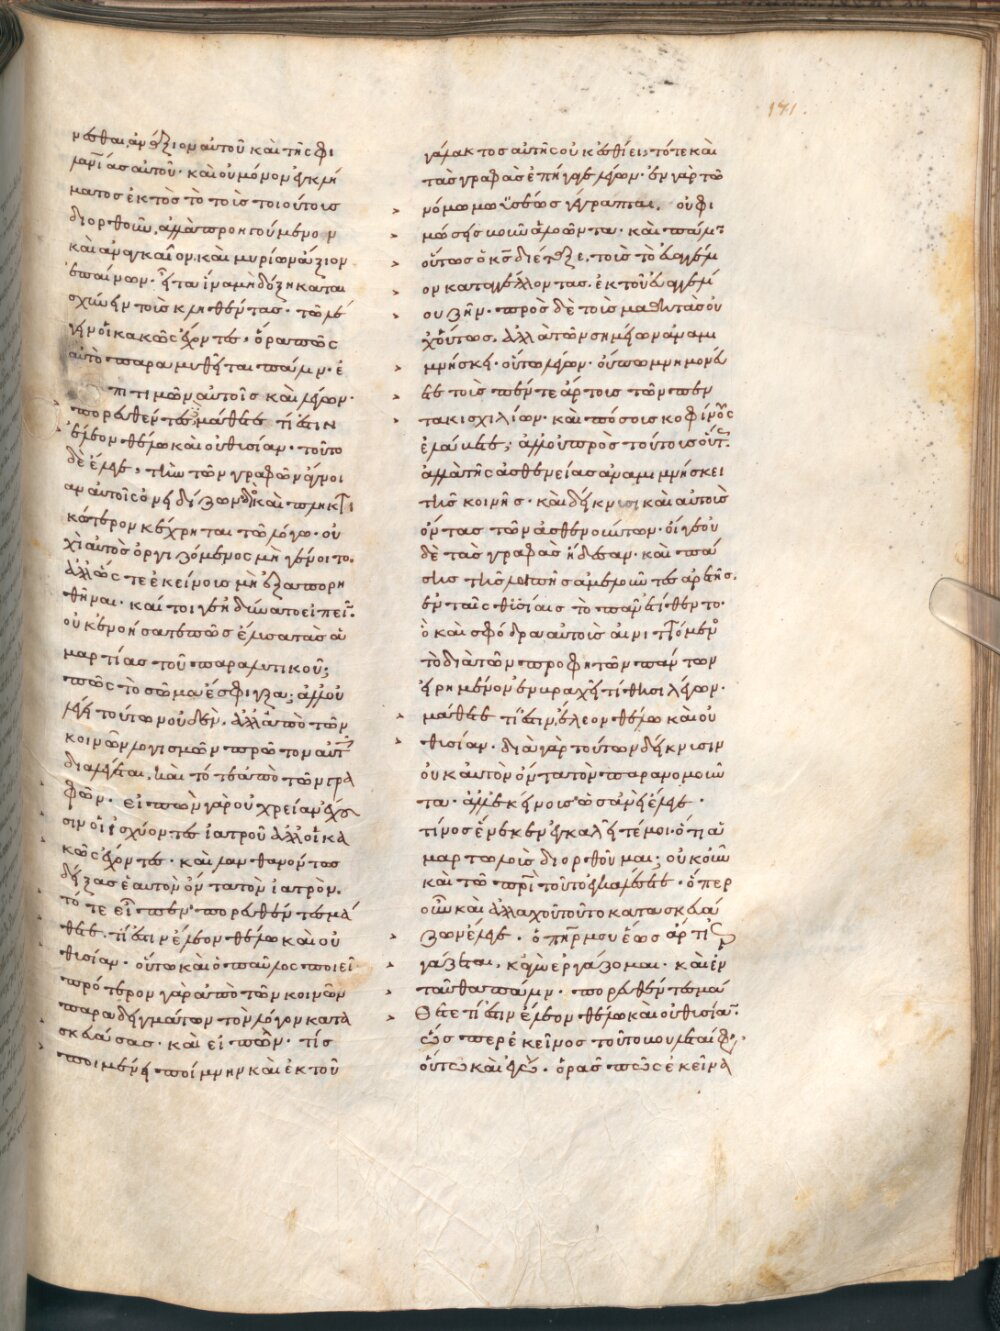 171.
νεσθαι, ἀνάξιον αὐτοῦ καὶ τῆς φι
λανίας αὐτοῦ· καὶ οὐ μόνον ἐγκλή
ματος ἐκτὸς τὸ τοῖς τοιούτοις
διορθοῦν, ἀλλὰ προηγούμενον
καὶ ἀναγκαῖον, καὶ μυρίων ἄξιον
ἐπαίνων· εἶτα ἵνα μὴ δόξη καται
σχύνειν τοὺς κληθέντας· τῶ λέ
γειν οἱ κακῶς ἔχοντες, ὅρα πῶς
αὐτὸ παραμυθεῖται πάλιν· ἐ
πιτιμῶν αὐτοῖς καὶ λέγων·
πορευθέντες μάθετε τί ἐστιν
ἔλεον θέλω καὶ οὐ θυσίαν· τοῦτο
δὲ ἔλεγε, τὴν τῶν γραφῶν ἄγνοι
αν αὐτοῖς ὀνειδίζων διὸ καὶ πληκτι
κώτερον κέχρηται τῶ λόγω· οὐ
χὶ αὐτὸς ὀργιζόμενος μὴ γένοιτο.
ἀλλ' ὥστε ἐκείνοις μὴ ἐξαπορη
θῆναι· καίτοι γε ἠδύνατο εἰπεῖν·
οὐκ ἐνοήσατε πῶς ἔλυσα τὰς ἁ
μαρτίας τοῦ παραλυτικοῦ;
πῶς τὸ σῶμα ἔσφιγξα; ἀλλ' οὐ
λέγει τούτων οὐδὲν. ἀλλ' ἀπὸ τῶν
κοινῶν λογισμῶν πρῶτον αὐτοῖς
διαλέγεται, καὶ τότε ἀπὸ τῶν γρα
φῶν· εἰπὼν γὰρ οὐ χρείαν ἔχου
σιν οἱ ἰσχύοντες ἰατροῦ ἀλλ' οἱ κα
κῶς ἔχοντες· καὶ λανθανόντως
δείξας ἑαυτὸν ὄντα τὸν ἰατρὸν.
τότε εἶπεν πορευθέντες μά
θετε. τί ἐστιν ἔλεον θέλω καὶ οὐ
θυσίαν· οὕτω καὶ ὁ παῦλος ποιεῖ·
πρότερον γὰρ ἀπὸ τῶν κοινῶν
παραδειγμάτων τὸν λόγον κατα
σκευάσας· καὶ εἰπὼν· τίς
ποιμένει ποίμνην καὶ ἐκ τοῦ
γάλακτος αὐτῆς οὐκ ἐσθίει; τότε καὶ
τὰς γραφὰς ἐπήγαγε λέγων· ἐν γὰρ τῶ
νόμω μωϋσέως γέγραπται. οὐ φι
μώσεις βοῦν ἀλοῶντα· καὶ πάλιν
οὕτως ὁ κς διέταξε, τοῖς τὸ εὐαγγέλι
ον καταγγέλλουσιν. ἐκ τοῦ εὐαγγελί
ου ζῆν· πρὸς δὲ τοὺς μαθητὰς οὐ
χ' οὕτως. ἀλλὰ τῶν σημείων ἀναμι
μνήσκει· οὕτω λέγων· οὔπω μνημονεύ
ετε τοὺς πέντε ἄρτους τῶν πεν
τακισχιλίων· καὶ πόσους κοφίνους
ἐλάβετε; ἀλλ' οὐ πρὸς τούτους οὕτως.
ἀλλὰ τῆς ἀσθενείας ἀναμιμνήσκει
τῆς κοινῆς· καὶ δείκνυσι καὶ αὐτοὺς
ὄντας τῶν ἀσθενούντων· οἵ γε οὐ
δὲ τὰς γραφὰς ἤδεσαν· καὶ πά
σης τῆς λοιπῆς ἀμελοῦντες ἀρετῆς.
ἐν ταῖς θυσίαις τὸ πᾶν ἐτίθεντο·
ὃ καὶ σφόδρα αὐτοῖς αἰνιττόμενος
τὸ διὰ τῶν προφητῶν πάντων
εἰρημένον ἐν βραχεῖ τίθησι λέγων·
μάθετε τί ἐστιν, ἔλεον θέλω καὶ οὐ
θυσίαν. διὰ γὰρ τούτων δείκνυσιν
οὐκ αὐτὸν ὄντα τὸν παρανομοῦν
τα· ἀλλ' ἐκείνους ὡσανεὶ ἔλεγε·
τίνος ἕνεκεν ἐγκαλεῖτέ μοι· ὅτι ἁ
μαρτωλοὺς διορθοῦμαι; οὐκοῦν
καὶ τῶ πρὶ τοῦτο ἐγκαλέσετε· ὅπερ
οὖν καὶ ἀλλαχοῦ τοῦτο κατασκευά
ζων ἔλεγε· ὁ πηρ μου ἕως ἄρτι ἐρ
γάζεται, κἀγὼ ἐργάζομαι· καὶ ἐν
ταῦθα πάλιν· πορευθέντες μά
θετε τί ἐστιν ἔλεον θέλω καὶ οὐ θυσίαν.
ὥσπερ ἐκεῖνος τοῦτο βούλεται φη·
οὕτω καὶ ἐγὼ· ὁρᾶς πῶς ἐκεῖνα